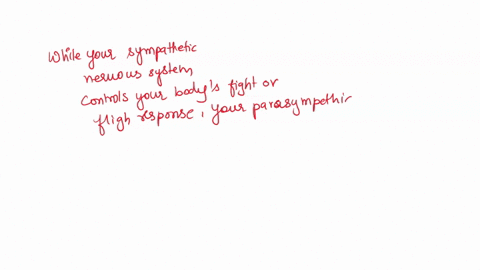 While your sympathetic
nervous system
controls your body's fight or
fligh response, your parasympethir